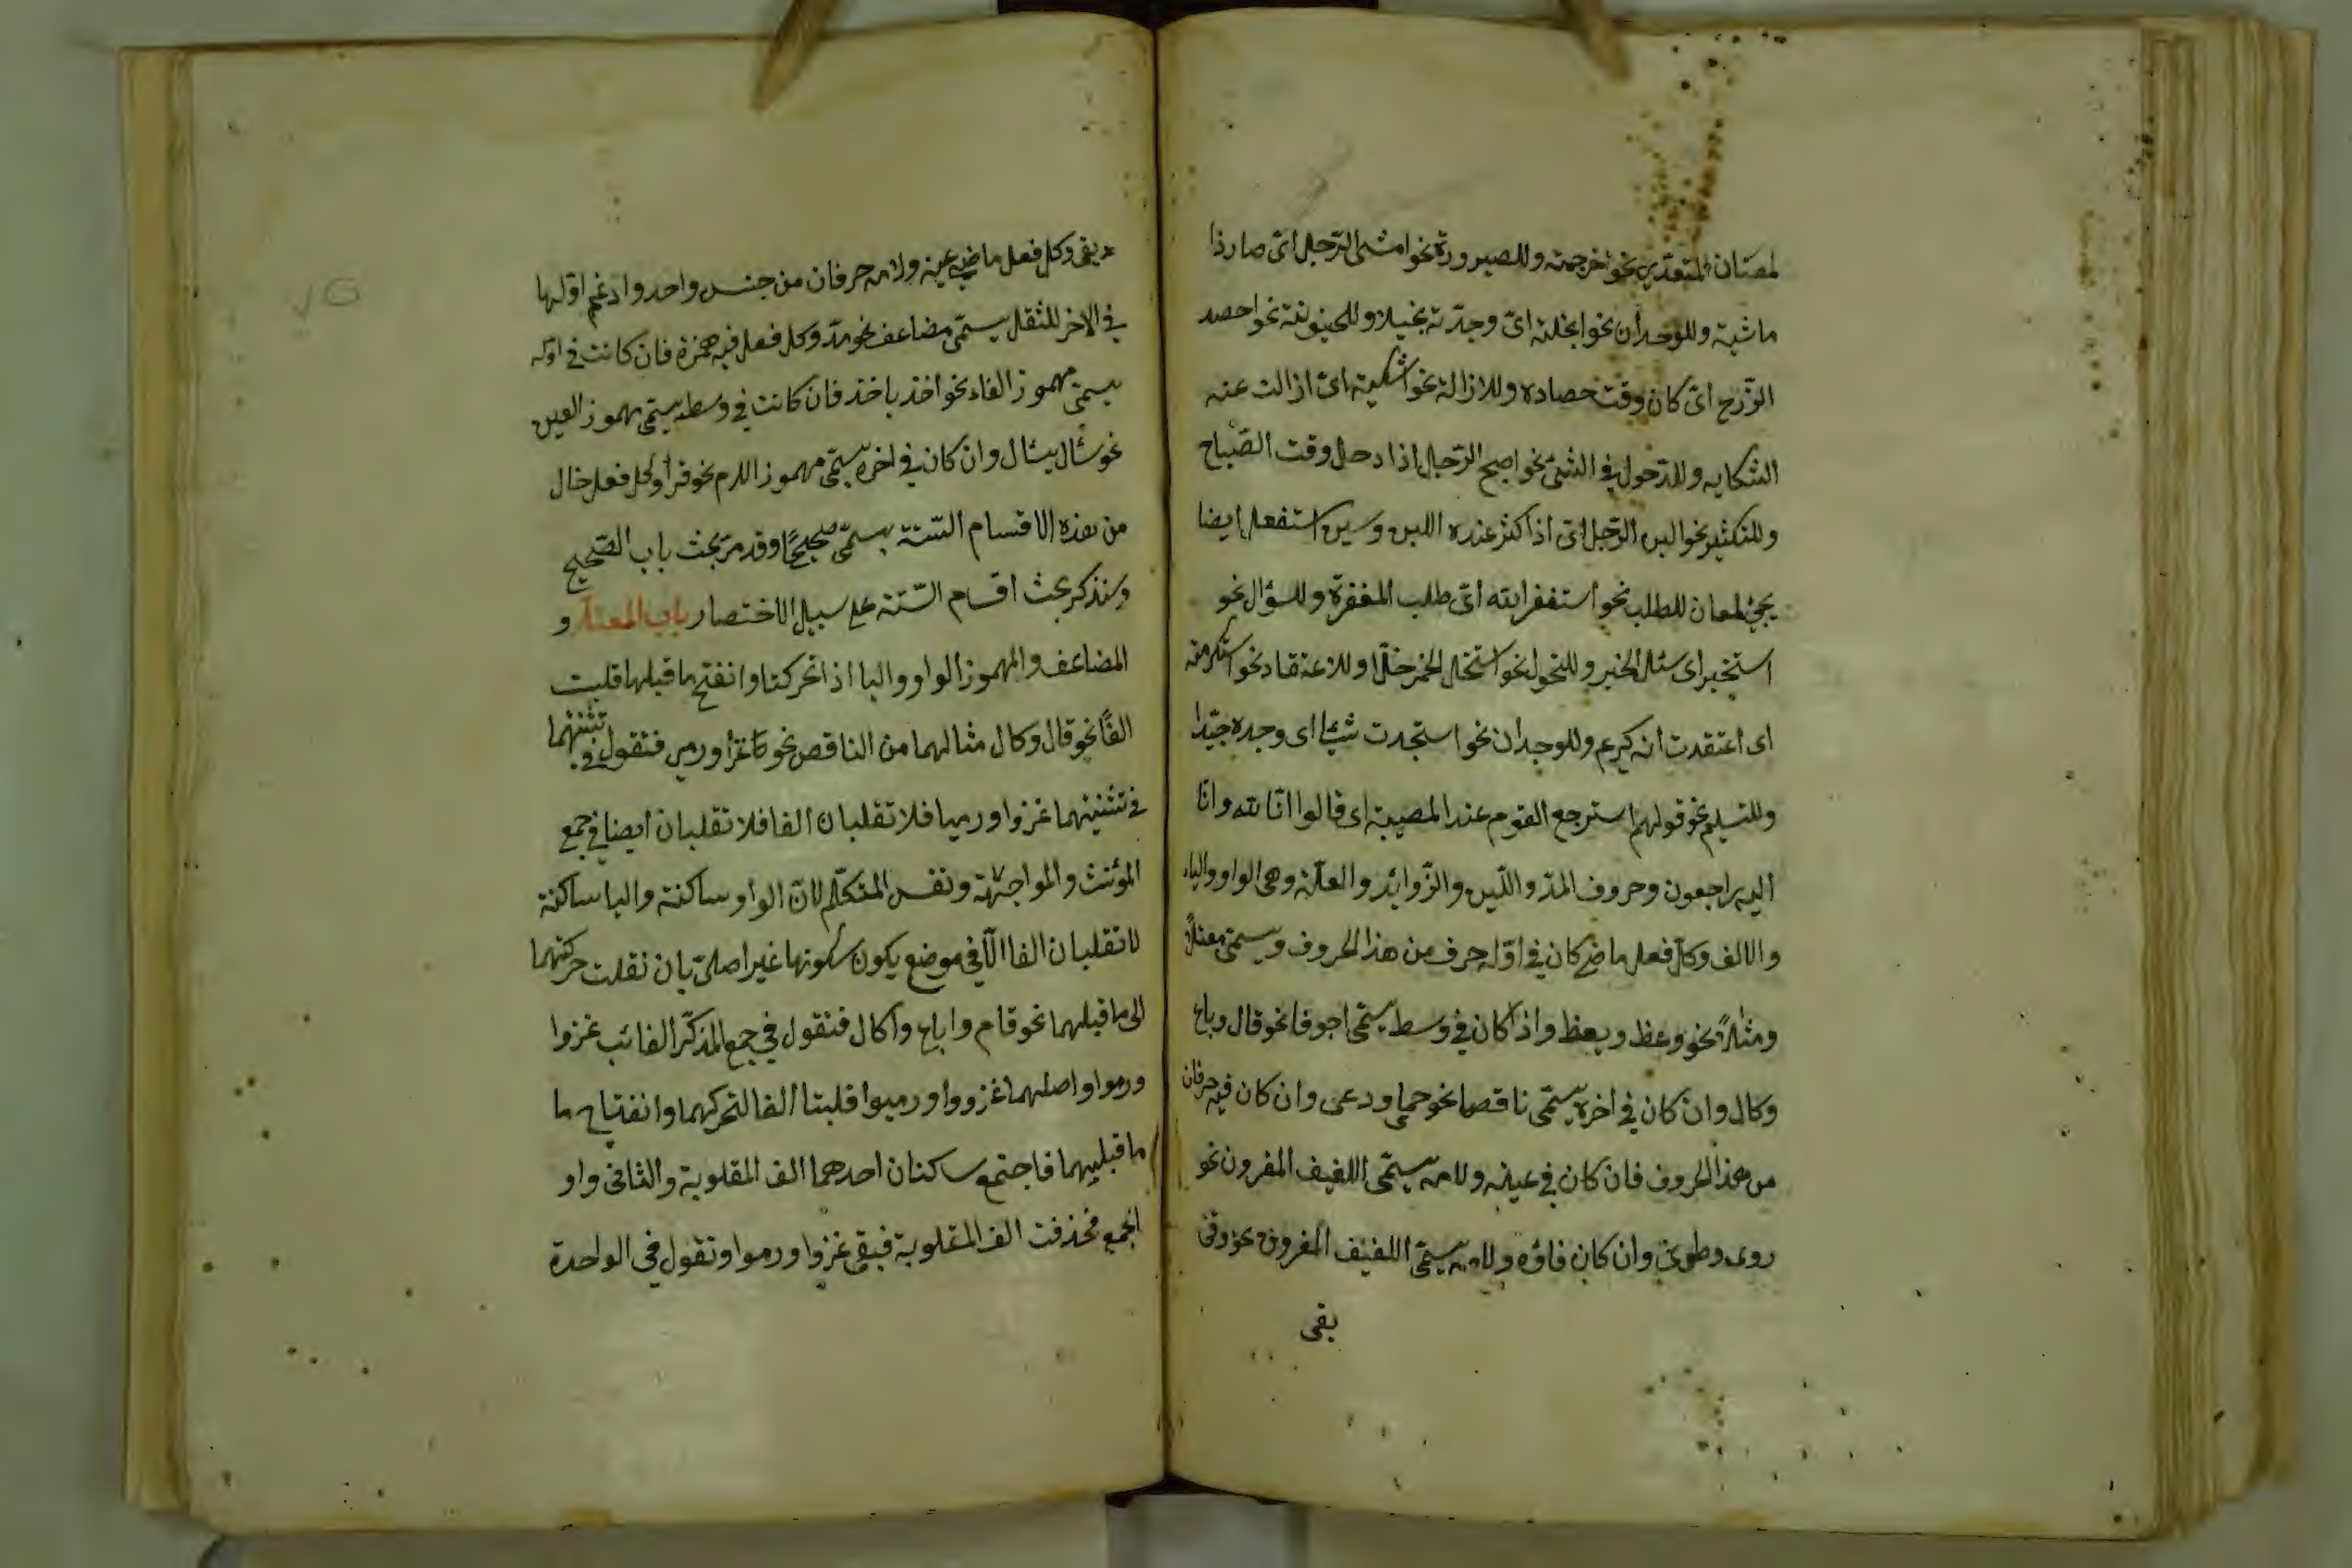 لمعان للتعدية نحو اخرجته وللصيرورة نحو امشى الرّجل اى صار ذا
ماشية وللوجدان نحو ابخلته اىّ وجدّته بخيلا وللحينونة نحو احصد
الزّرع اىّ كان وقت حصاده وللازالة نحو اشكيته اىّ ازالت عنه
الشكايه وللدّحول فى الشئ نحو اصبح الرّجل اذا دحل وقت الصّباح
وللتكثير نحو البن الرّجل اىّ اذا كثر عنده اللبن وسين استفعل ايضا
يجئ لمعان للطلب نحو استغفر الله اىّ طلب المغفرة وللسؤال نحو
استخبر اى سئل الخبر وللتحول نحو استخل الخمر خلّا وللاعتقاد نحو استكرمته
اى اعتقدت انه كريم وللوجدان نحو استجدت شيئا اى وجده جيّدا
وللتسليم نحو قولهم استرجع القوم عند المصيبة اى قالوا انّا لله وانّا
اليه راجعون وحروف المدّ واللّين والزّوائد والعلّة وهى الواو والياء
والالف وكلّ فعل ماض كان فى اوّله حرف من هذا الحروف ويسمّى معتلاً
ومثالاً نحو وعظ ويعظ واذا كان فى وسط يسمّى اجوفا نحو قال وباع
وكال وان كان فى اخره يسمّى ناقصا نحو حمى ودعى وان كان فيه حرفان
من هذا الحروف فان كان فى عينه ولامه يسمّى اللفيف المقرون نحو
روى وطوى وان كان فاؤه ولامه يسمّى اللفيف المفروق نحو وقى
يقى
يقى وكل فعل ماضى عينه ولامه حرفان من جنس واحد وادغم اوّلها
فى الاخر للثقل يسمّى مضاعف نحو مدّ وكل فعل فيه همزة فان كانت فى اوّله
يسمّى مهموز الفاء نحو اخذ ياخذ فان كانت فى وسطه يسمّى مهموز العين
نحو سئال يسئال وان كان فى اخره يسمّى مهموز اللام نحو قرأ وكل فعل خال
من هذه الاقسام السّتة يسمّى صحيحًا وقد مرّ بحث باب الصّحيح
وسنذكر بحث اقسام السّتة على سبيل الاختصار باب المعتلّ و
المضاعف والمهموز الواو واليا اذا تحركتا وانفتح ما قبلهما قلبت
الفًا نحو قال وكال مثالهما من الناقص نحو غزا ورمى فتقول فى تثنيتهما
فى تثنيتهما غزوا ورميا فلا تقلبان الفا فلا تقلبان ايضا فى جمع
المؤنث والمواجهة ونفس المتكلّم لانّ الواو ساكنة واليا ساكنة
لا تقلبان الفا الّا فى موضع يكون سكونها غير اصلىّ بان نقلت حركتهما
الى ما قبلهما نحو قام واباع واكال فتقول فى جمع المذكّر الغائب غزوا
ورموا واصلهما غزووا ورميوا قلبتا الفا لتحركهما وانفتاح ما
ما قبليهما فاجتمع ساكنان احدهما الف المقلوبة والثانى واو
الجمع فحذفت الف المقلوبة فبقى غزوا ورموا وتقول فى الواحدة